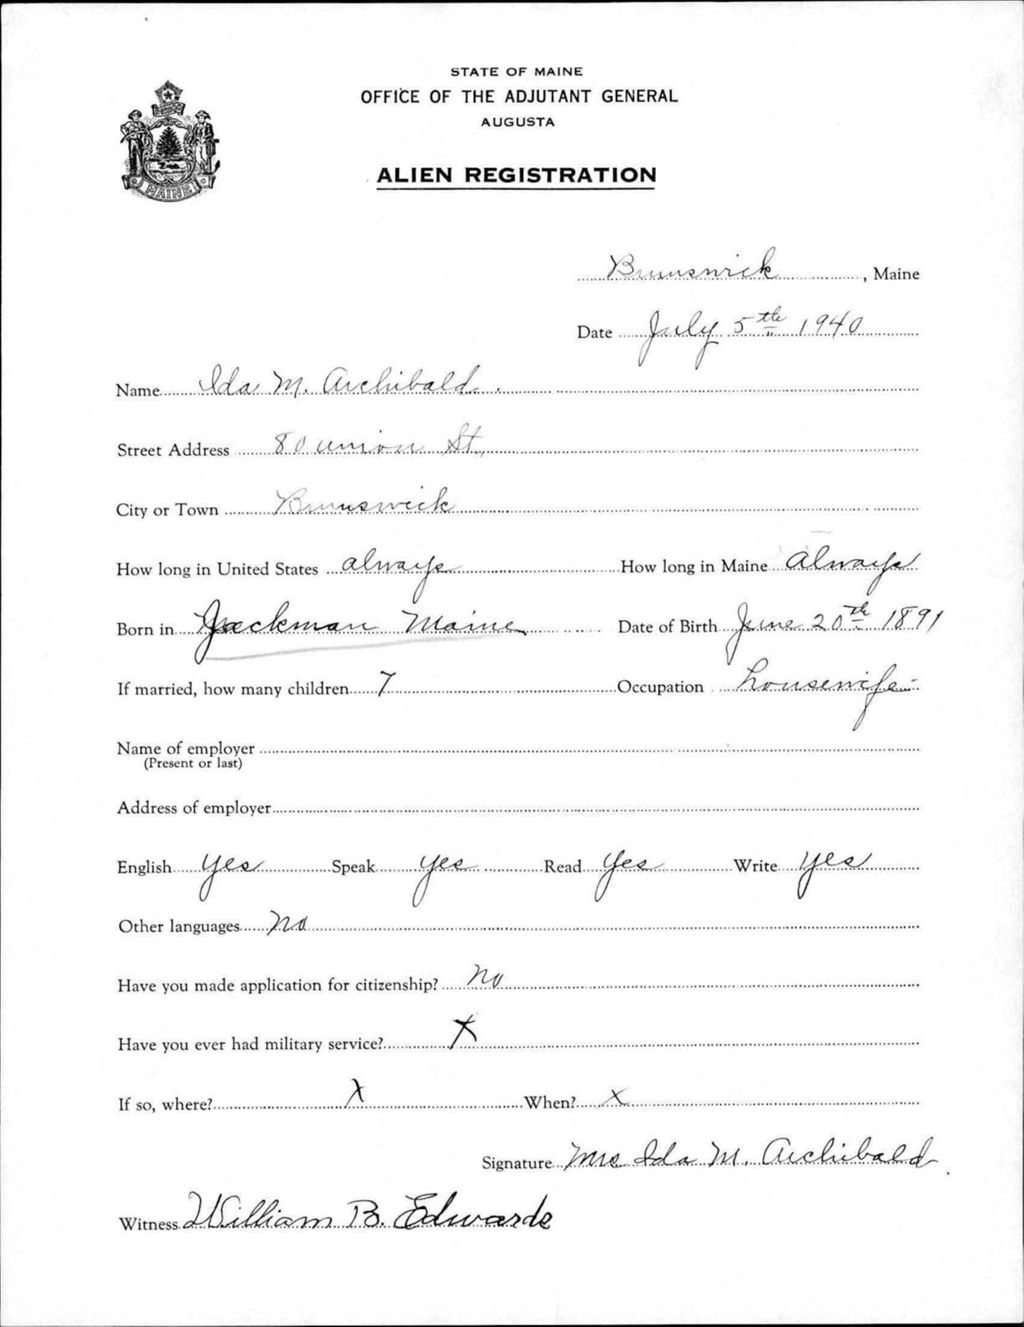 STATE OF MAINE
OFFICE OF THE ADJUTANT GENERAL
AUGUSTA
ALIEN REGISTRATION
MAINE
Brunswick, Maine
Date July 5th 1940
Name Ida M. Archibald.
Street Address 80 union St.,
City or Town Brunswick
How long in United States always How long in Maine Always
Born in Jackman Maine Date of Birth June 20th 1891
If married, how many children 7 Occupation housewife
Name of employer
(Present or last)
Address of employer
English yes Speak yes Read yes Write yes
Other languages no
Have you made application for citizenship? No
Have you ever had military service? X
If so, where? X When? X
Signature Mrs Ida M. Archibald
Witness William B. Edwards